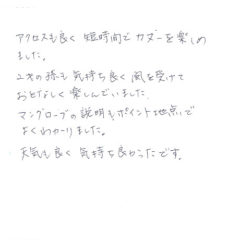 アクセスも良く 短時間で カヌーを楽しめ
ました。
2才の孫も 気持ち良く 風を受けて
おとなしく 楽しんでいました
マングローブの説明もポイント地点で
よくわかりました。
天気も良く 気持ち良かったです。